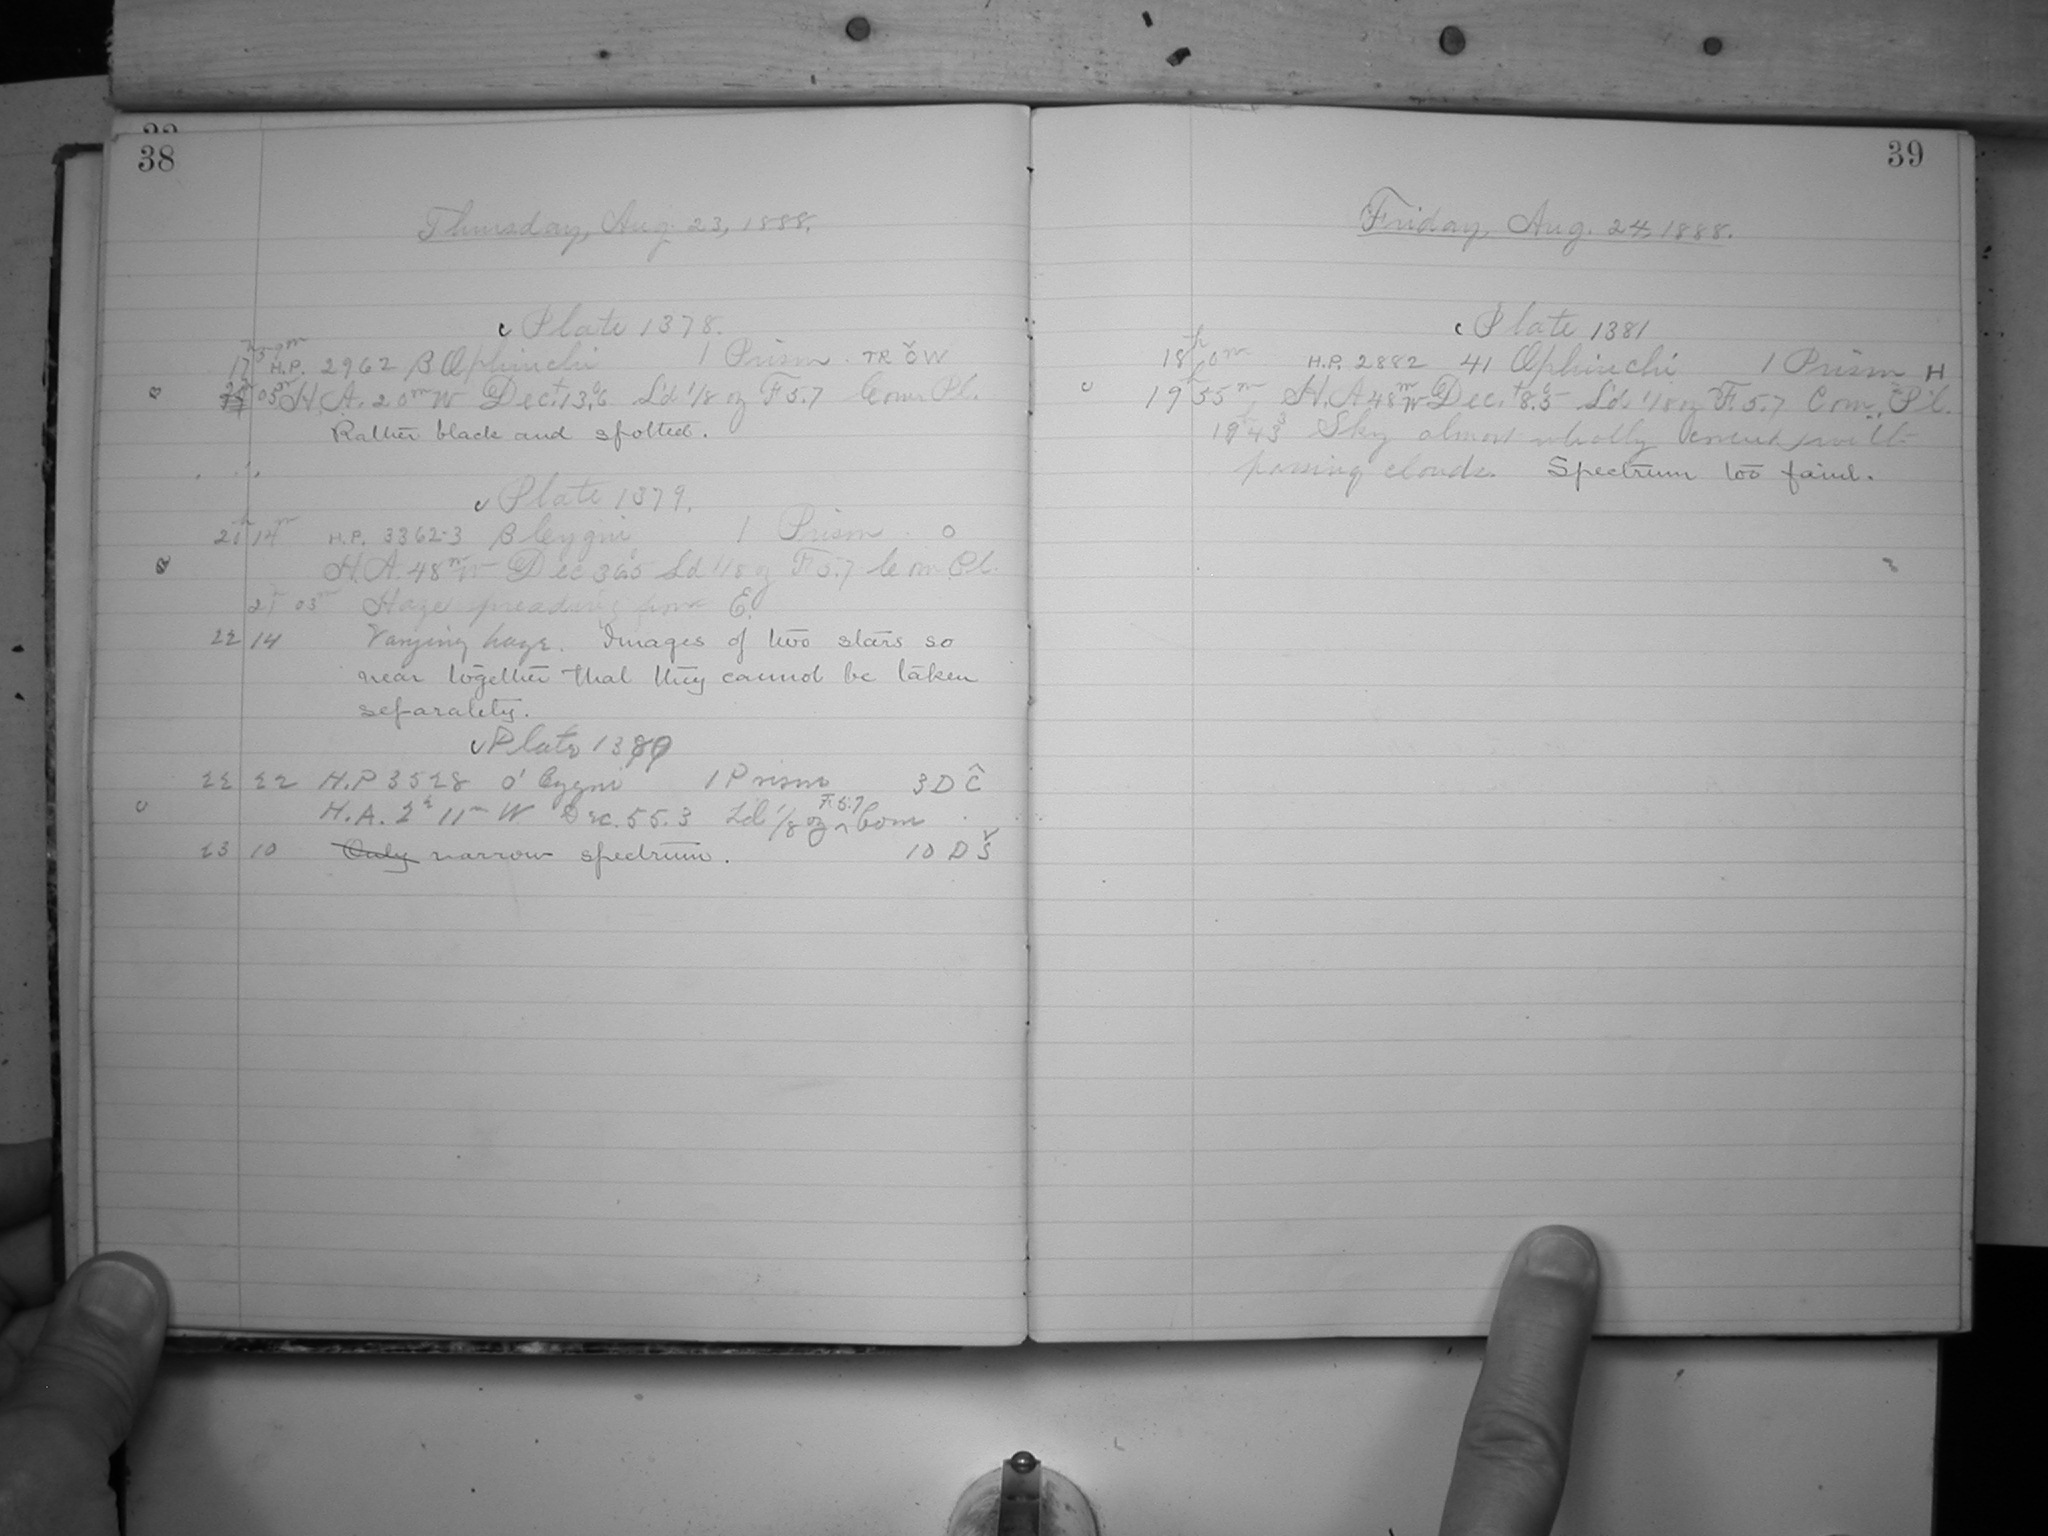 38
Thursday, Aug. 23, 1888.
c Plate 1378.
17h 59m H.P. 2962 β Ophiuchi 1 Prism. TR ǑW
05m H.A. 20m W Dec. +13.6 Ld 1/8 oz F 5.7 Com. Pl.
Rather black and spotted.
c Plate 1379.
21h 14m H.P. 3362-3 β Cygni 1 Prism. O
H.A. 48m W Dec 36.5 Ld 1/8 oz F 5.7 Com Pl.
21h 03m Haze spreading from E.
22 14 Varying haze. Images of two stars so
near together that they cannot be taken
separately.
c Plate 1380
22 22 H.P 3528 o' Cygni 1 Prism 3 D Ĉ
H.A. 2h 11m W Dec. 55.3 Ld 1/8 oz F. 5.7 Com
23 10 Only narrow spectrum. 10 D Š
39
Friday, Aug. 24, 1888.
c Plate 1381
18h 0m H.P. 2882 41 Ophiuchi 1 Prism H
19h 55m H.A 48m W Dec. +8.5 Ld 1/8 oz F. 5.7 Com. Pl.
19h 43 Sky almost wholly covered with
passing clouds. Spectrum too faint.